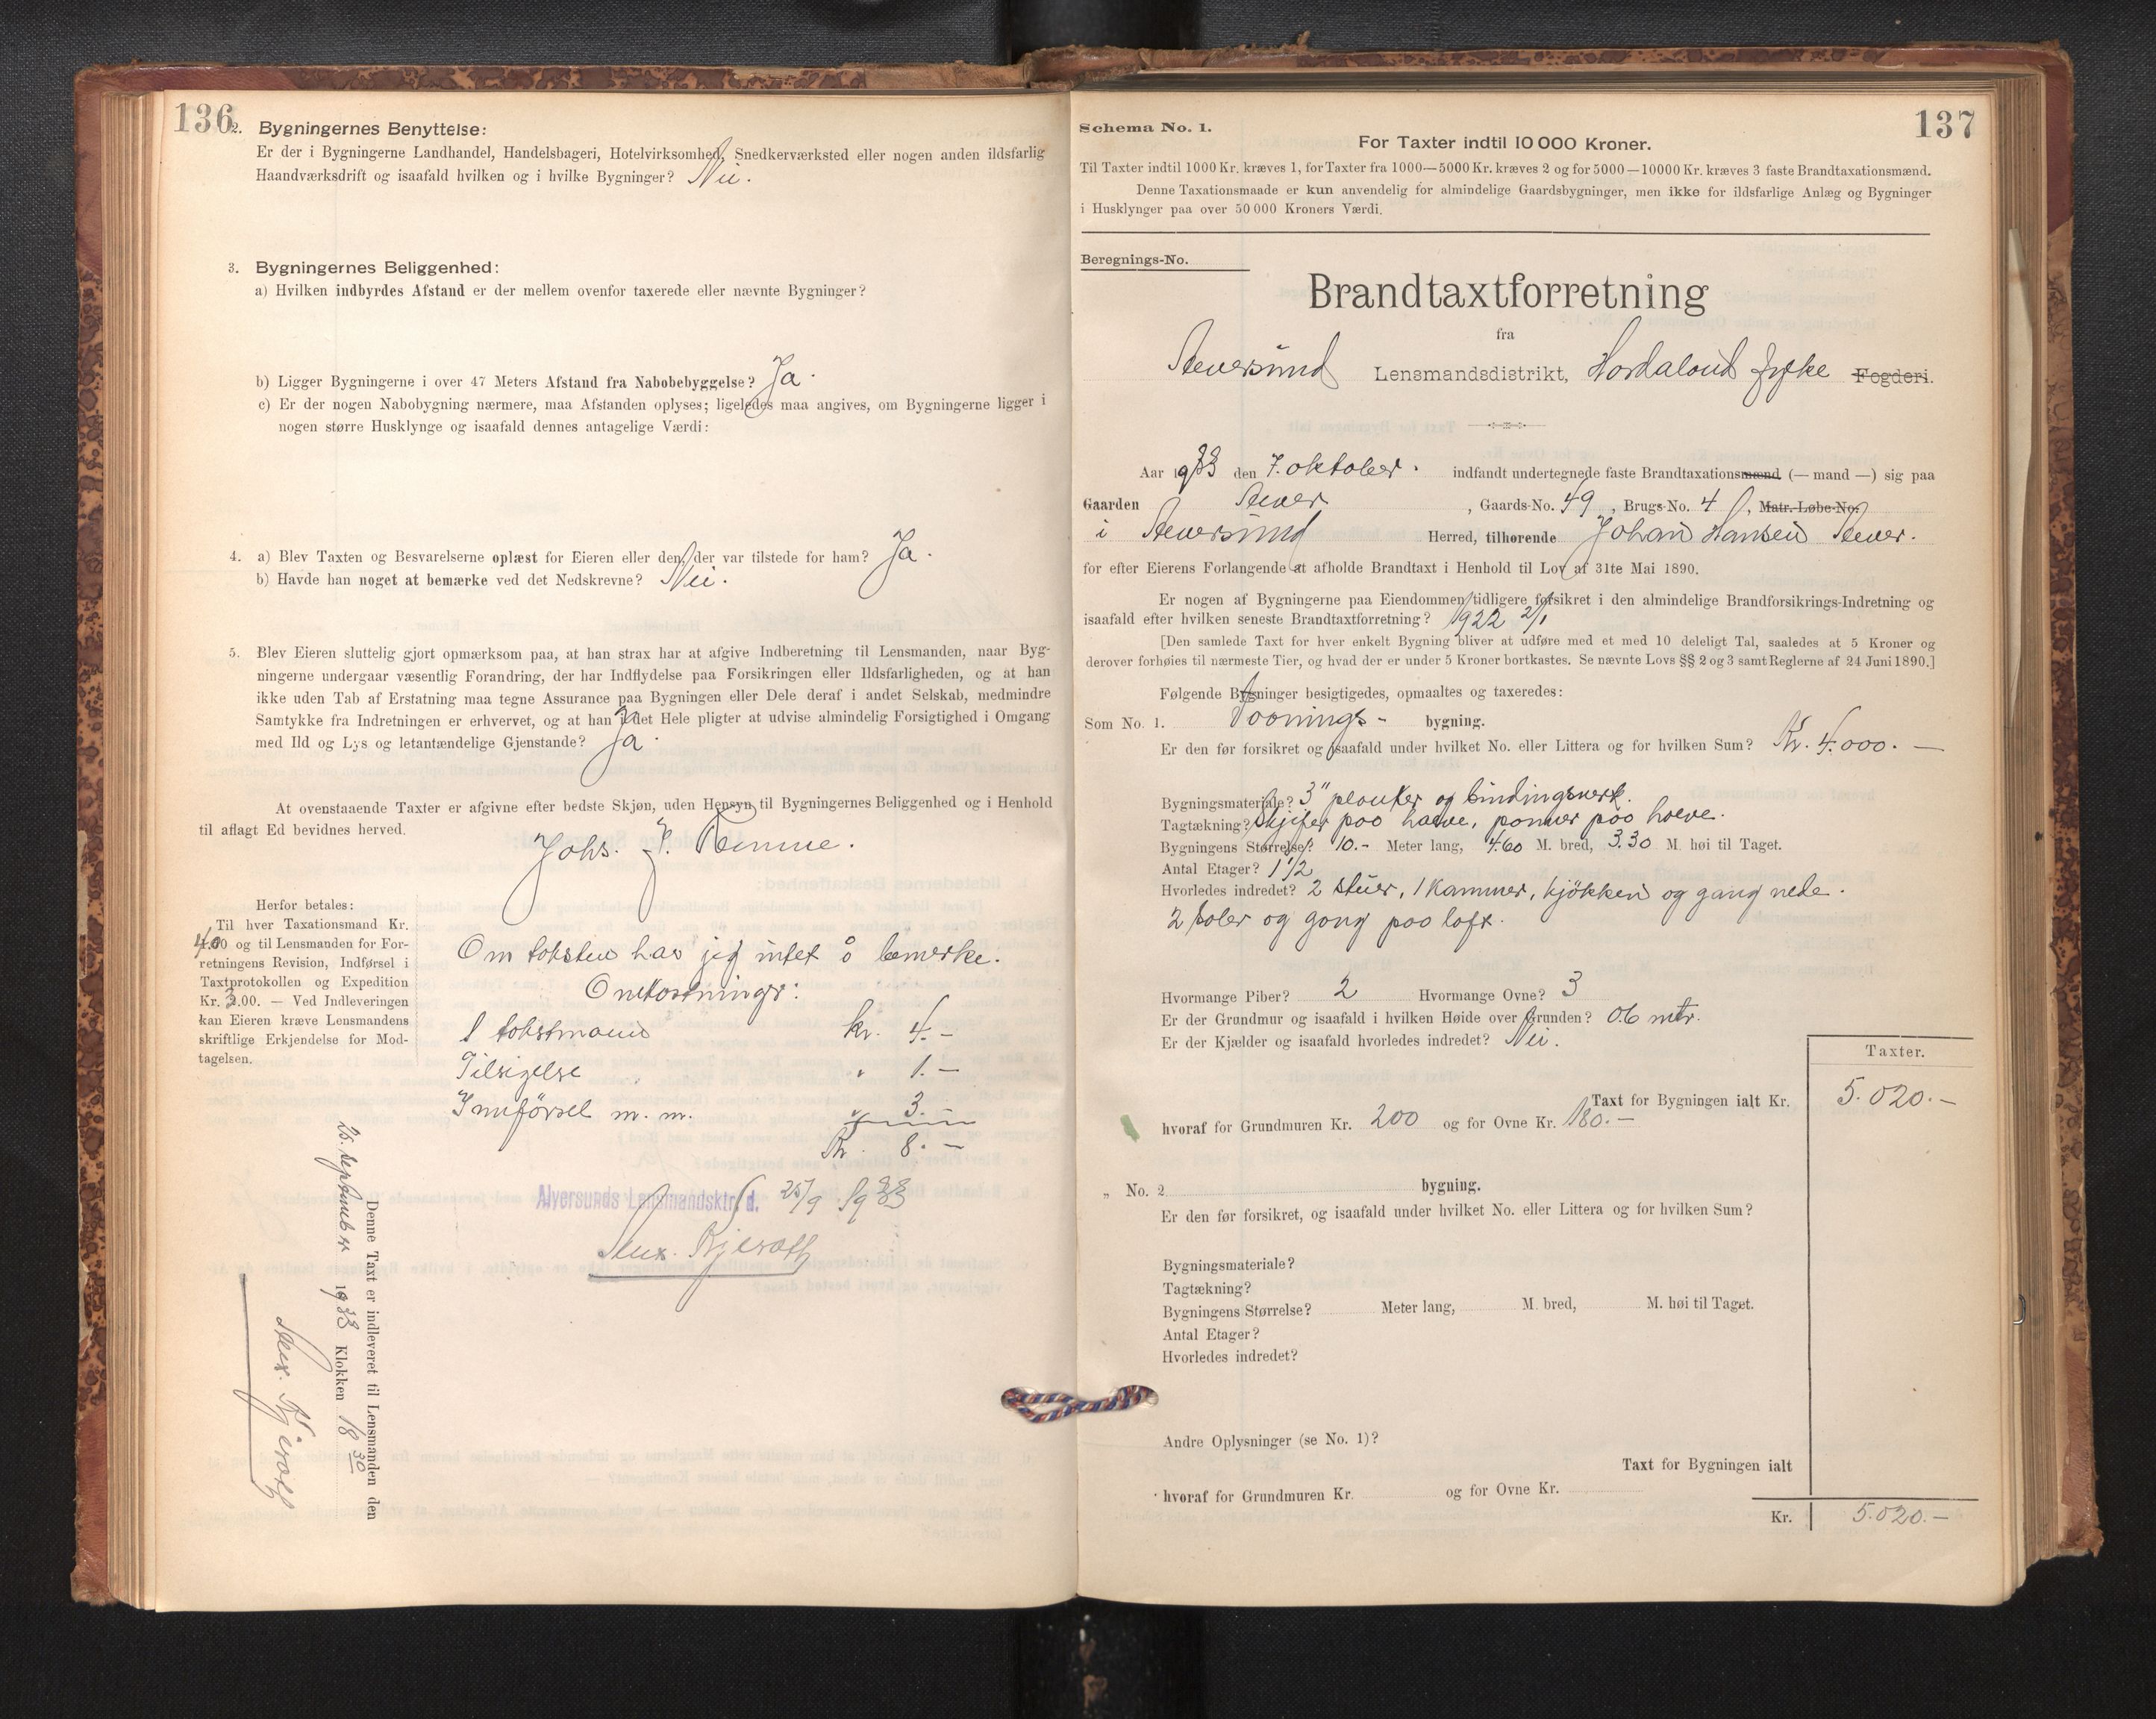 136
2. Bygningernes Benyttelse:
Er der i Bygningerne Landhandel, Handelsbageri, Hotelvirksomhed, Snedkerværksted eller nogen anden ildsfarlig
Haandværksdrift og isaafald hvilken og i hvilke Bygninger? Nei.
3. Bygningernes Beliggenhed:
a) Hvilken indbyrdes Afstand er der mellem ovenfor taxerede eller nævnte Bygninger?
b) Ligger Bygningerne i over 47 Meters Afstand fra Nabobebyggelse? Ja.
c) Er der nogen Nabobygning nærmere, maa Afstanden oplyses; ligeledes maa angives, om Bygningerne ligger i
nogen større Husklynge og isaafald dennes antagelige Værdi:
4. a) Blev Taxten og Besvarelserne oplæst for Eieren eller den, der var tilstede for ham? Ja.
b) Havde han noget at bemærke ved det Nedskrevne? Nei.
5. Blev Eieren sluttelig gjort opmærksom paa, at han strax har at afgive Indberetning til Lensmanden, naar Byg-
ningerne undergaar væsentlig Forandring, der har Indflydelse paa Forsikringen eller Ildsfarligheden, og at han
ikke uden Tab af Erstatning maa tegne Assurance paa Bygningen eller Dele deraf i andet Selskab, medmindre
Samtykke fra Indretningen er erhvervet, og at han i det Hele pligter at udvise almindelig Forsigtighed i Omgang
med Ild og Lys og letantændelige Gjenstande? Ja.
At ovenstaaende Taxter er afgivne efter bedste Skjøn, uden Hensyn til Bygningernes Beliggenhed og i Henhold
til aflagt Ed bevidnes herved.
Johs. J.
Herfor betales:
Til hver Taxationsmand Kr.
4.00 og til Lensmanden for For-
retningens Revision, Indførsel i
Taxtprotokollen og Expedition
Kr. 3.00. — Ved Indleveringen
kan Eieren kræve Lensmandens
skriftlige Erkjendelse for Mod-
tagelsen.
Om taksten har jeg intet å bemerke.
Omkostninger:
1 takstmann kr. 4.-
Tilsigelse " 1.-
Innförsel m. m. " 3.-
Kr. 8.-
Alversunds Lensmandsktr. d. 25/9 1933
Alex. Kjeroth
Denne Taxt er indleveret til Lensmanden den
25. september 1933 Klokken 18 30
Alex. Kjeroth
137
Schema No. 1.
For Taxter indtil 10 000 Kroner.
Til Taxter indtil 1000 Kr. kræves 1, for Taxter fra 1000—5000 Kr. kræves 2 og for 5000—10000 Kr. kræves 3 faste Brandtaxationsmænd.
Denne Taxationsmaade er kun anvendelig for almindelige Gaardsbygninger, men ikke for ildsfarlige Anlæg og Bygninger
i Husklynger paa over 50 000 Kroners Værdi.
Beregnings-No.
Brandtaxtforretning
fra
Alversund Lensmandsdistrikt, Hordaland fylke Fogderi.
Aar 1933 den 7. oktober. indfandt undertegnede faste Brandtaxationsmænd (— mand —) sig paa
Gaarden Alver , Gaards-No. 49, Brugs-No. 4, Matr.-Løbe-No.
i Alversund Herred, tilhørende Johan Hansen Alver.
for efter Eierens Forlangende at afholde Brandtaxt i Henhold til Lov af 31te Mai 1890.
Er nogen af Bygningerne paa Eiendommen tidligere forsikret i den almindelige Brandforsikrings-Indretning og
isaafald efter hvilken seneste Brandtaxtforretning? 1922 2/1
[Den samlede Taxt for hver enkelt Bygning bliver at udføre med et med 10 deleligt Tal, saaledes at 5 Kroner og
derover forhøies til nærmeste Tier, og hvad der er under 5 Kroner bortkastes. Se nævnte Lovs §§ 2 og 3 samt Reglerne af 24 Juni 1890.]
Følgende Bygninger besigtigedes, opmaaltes og taxeredes:
Som No. 1. Vaanings- bygning.
Er den før forsikret og isaafald under hvilket No. eller Littera og for hvilken Sum? Kr. 4.000.—
Bygningsmateriale? 3" planker og bindingsverk.
Tagtækning? Skjifer paa halve, panner paa halve.
Bygningens Størrelse? 10.- Meter lang, 4.60 M. bred, 3.30 M. høi til Taget.
Antal Etager? 1 1/2
Hvorledes indredet? 2 stuer, 1 kammer, kjökken og gang nede.
2 saler og gang paa loft.
Hvormange Piber? 2 Hvormange Ovne? 3
Er der Grundmur og isaafald i hvilken Høide over Grunden? 0.6 mtr.
Er der Kjælder og isaafald hvorledes indredet? Nei.
Taxter.
Taxt for Bygningen ialt Kr. 5.020.-
hvoraf for Grundmuren Kr. 200 og for Ovne Kr. 180.-
„ No. 2 bygning.
Er den før forsikret, og isaafald under hvilket No. eller Littera og for hvilken Sum?
Bygningsmateriale?
Tagtækning?
Bygningens Størrelse? Meter lang, M. bred, M. høi til Taget.
Antal Etager?
Hvorledes indredet?
Andre Oplysninger (se No. 1)?
Taxt for Bygningen ialt
hvoraf for Grundmuren Kr. og for Ovne Kr.
Kr. 5.020.-